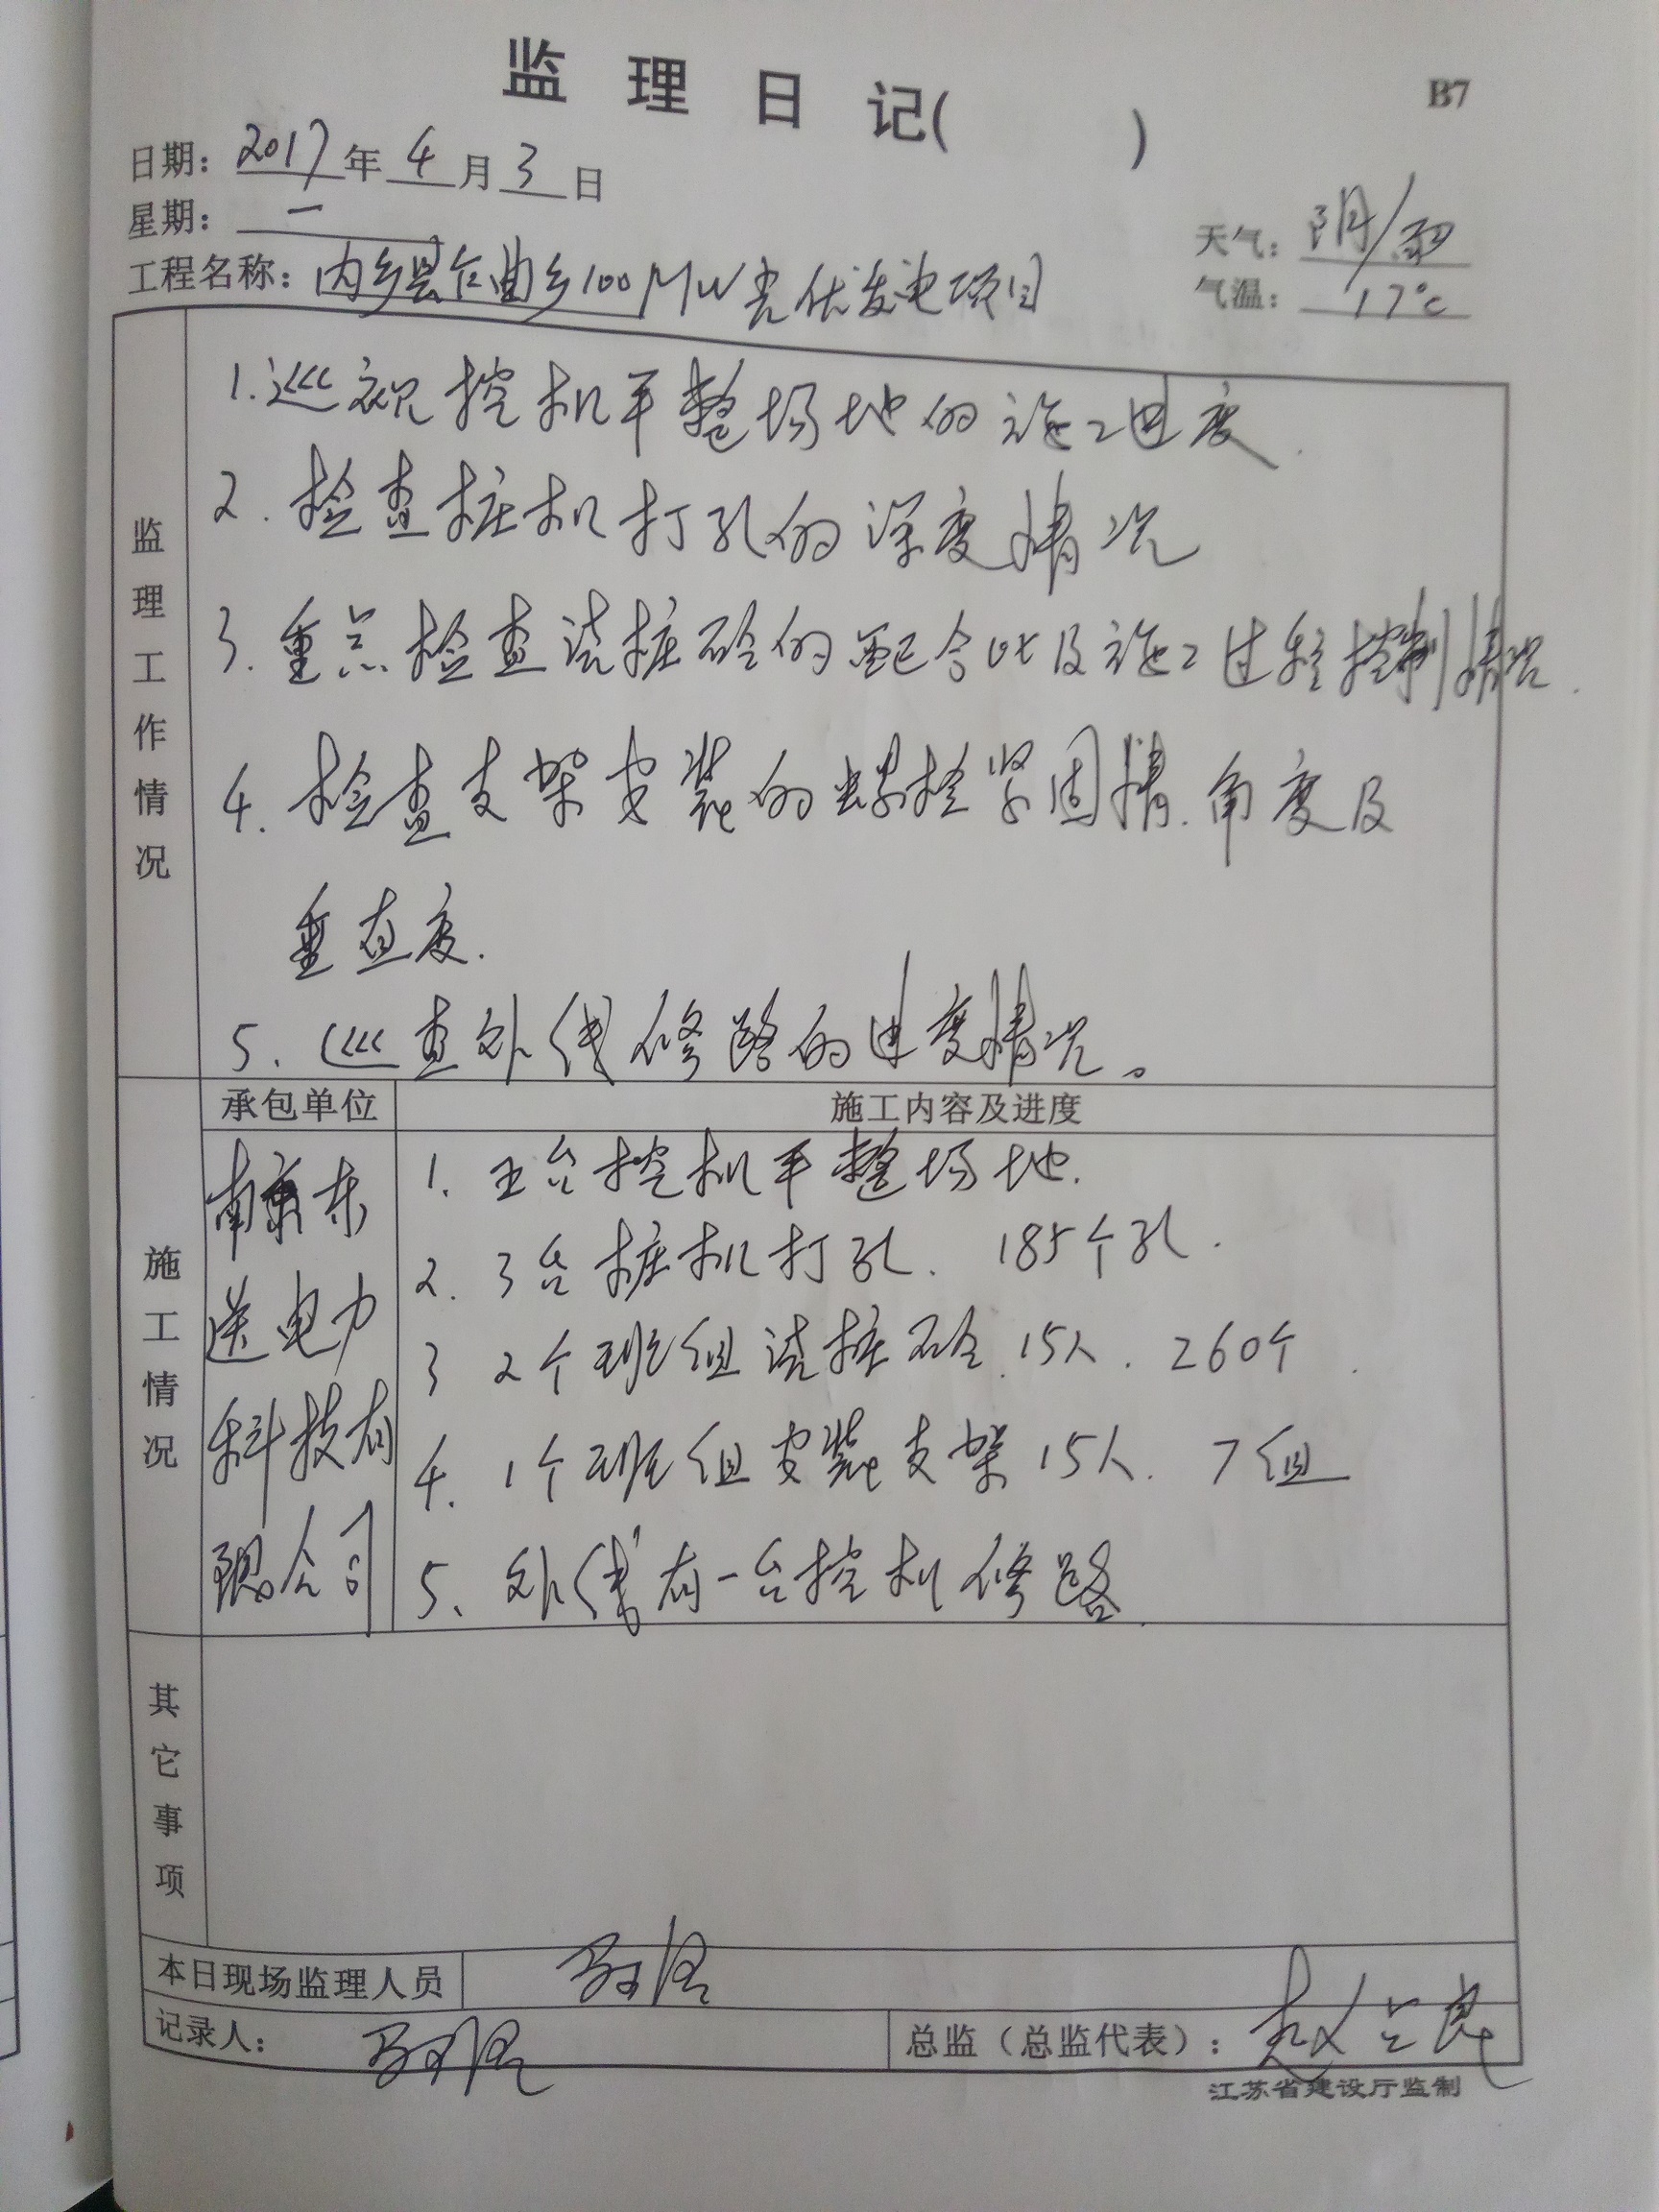 监理日记( )
B7
日期：2017年4月3日
星期：一
天气：阴/雨
工程名称：内乡县仁曲乡100MW光伏发电项目
气温：17℃
监理工作情况
1.巡视挖机平整场地的施工进度.
2.检查桩机打孔的深度情况
3.重点检查浇桩砼的配合比及施工过程控制情况.
4.检查支架安装的螺栓紧固情.角度及
垂直度.
5、巡查外线修路的进度情况。
施工情况
承包单位
施工内容及进度
南京东
送电力
科技有
限公司
1.五台挖机平整场地.
2.3台桩机打孔.185个孔.
3 2个班组浇桩砼.15人.260个.
4.1个班组安装支架15人.7组
5、外线有一台挖机修路.
其它事项
本日现场监理人员
记录人：
总监（总监代表）：赵
江苏省建设厅监制